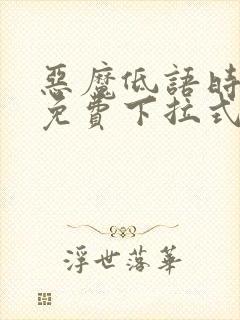 惡魔低語時
免費下拉式
浮世落華